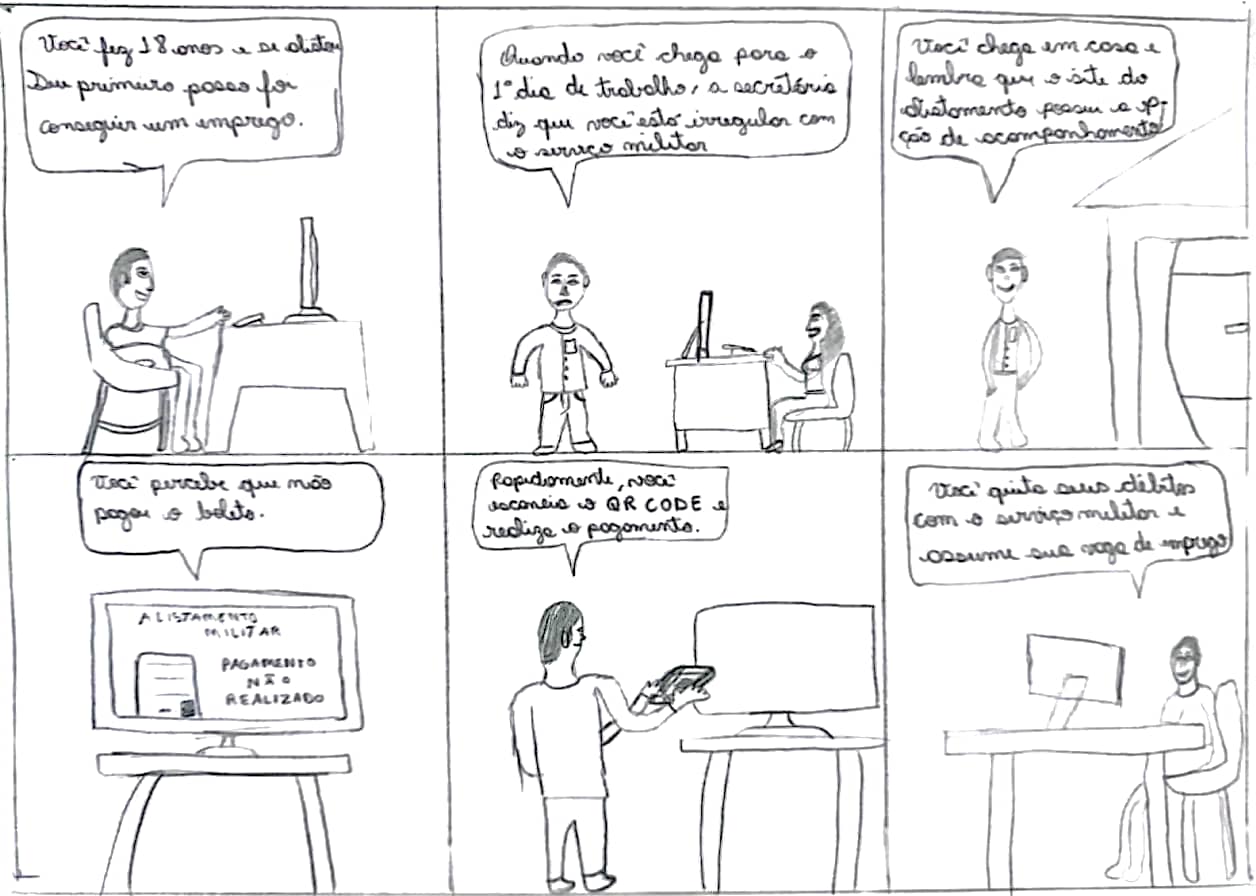 Você fez 18 anos e se alistou
Seu primeiro passo foi
conseguir um emprego.
Quando você chega para o
1º dia de trabalho, a secretária
diz que você está irregular com
o serviço militar
Você chega em casa e
lembra que o site do
alistamento possui a op-
ção de acompanhamento
Você percebe que não
pagou o boleto.
ALISTAMENTO
MILITAR
PAGAMENTO
NÃO
REALIZADO
Rapidamente, você
escaneia o QR CODE e
realiza o pagamento.
Você quita seus débitos
com o serviço militar e
assume sua vaga de emprego